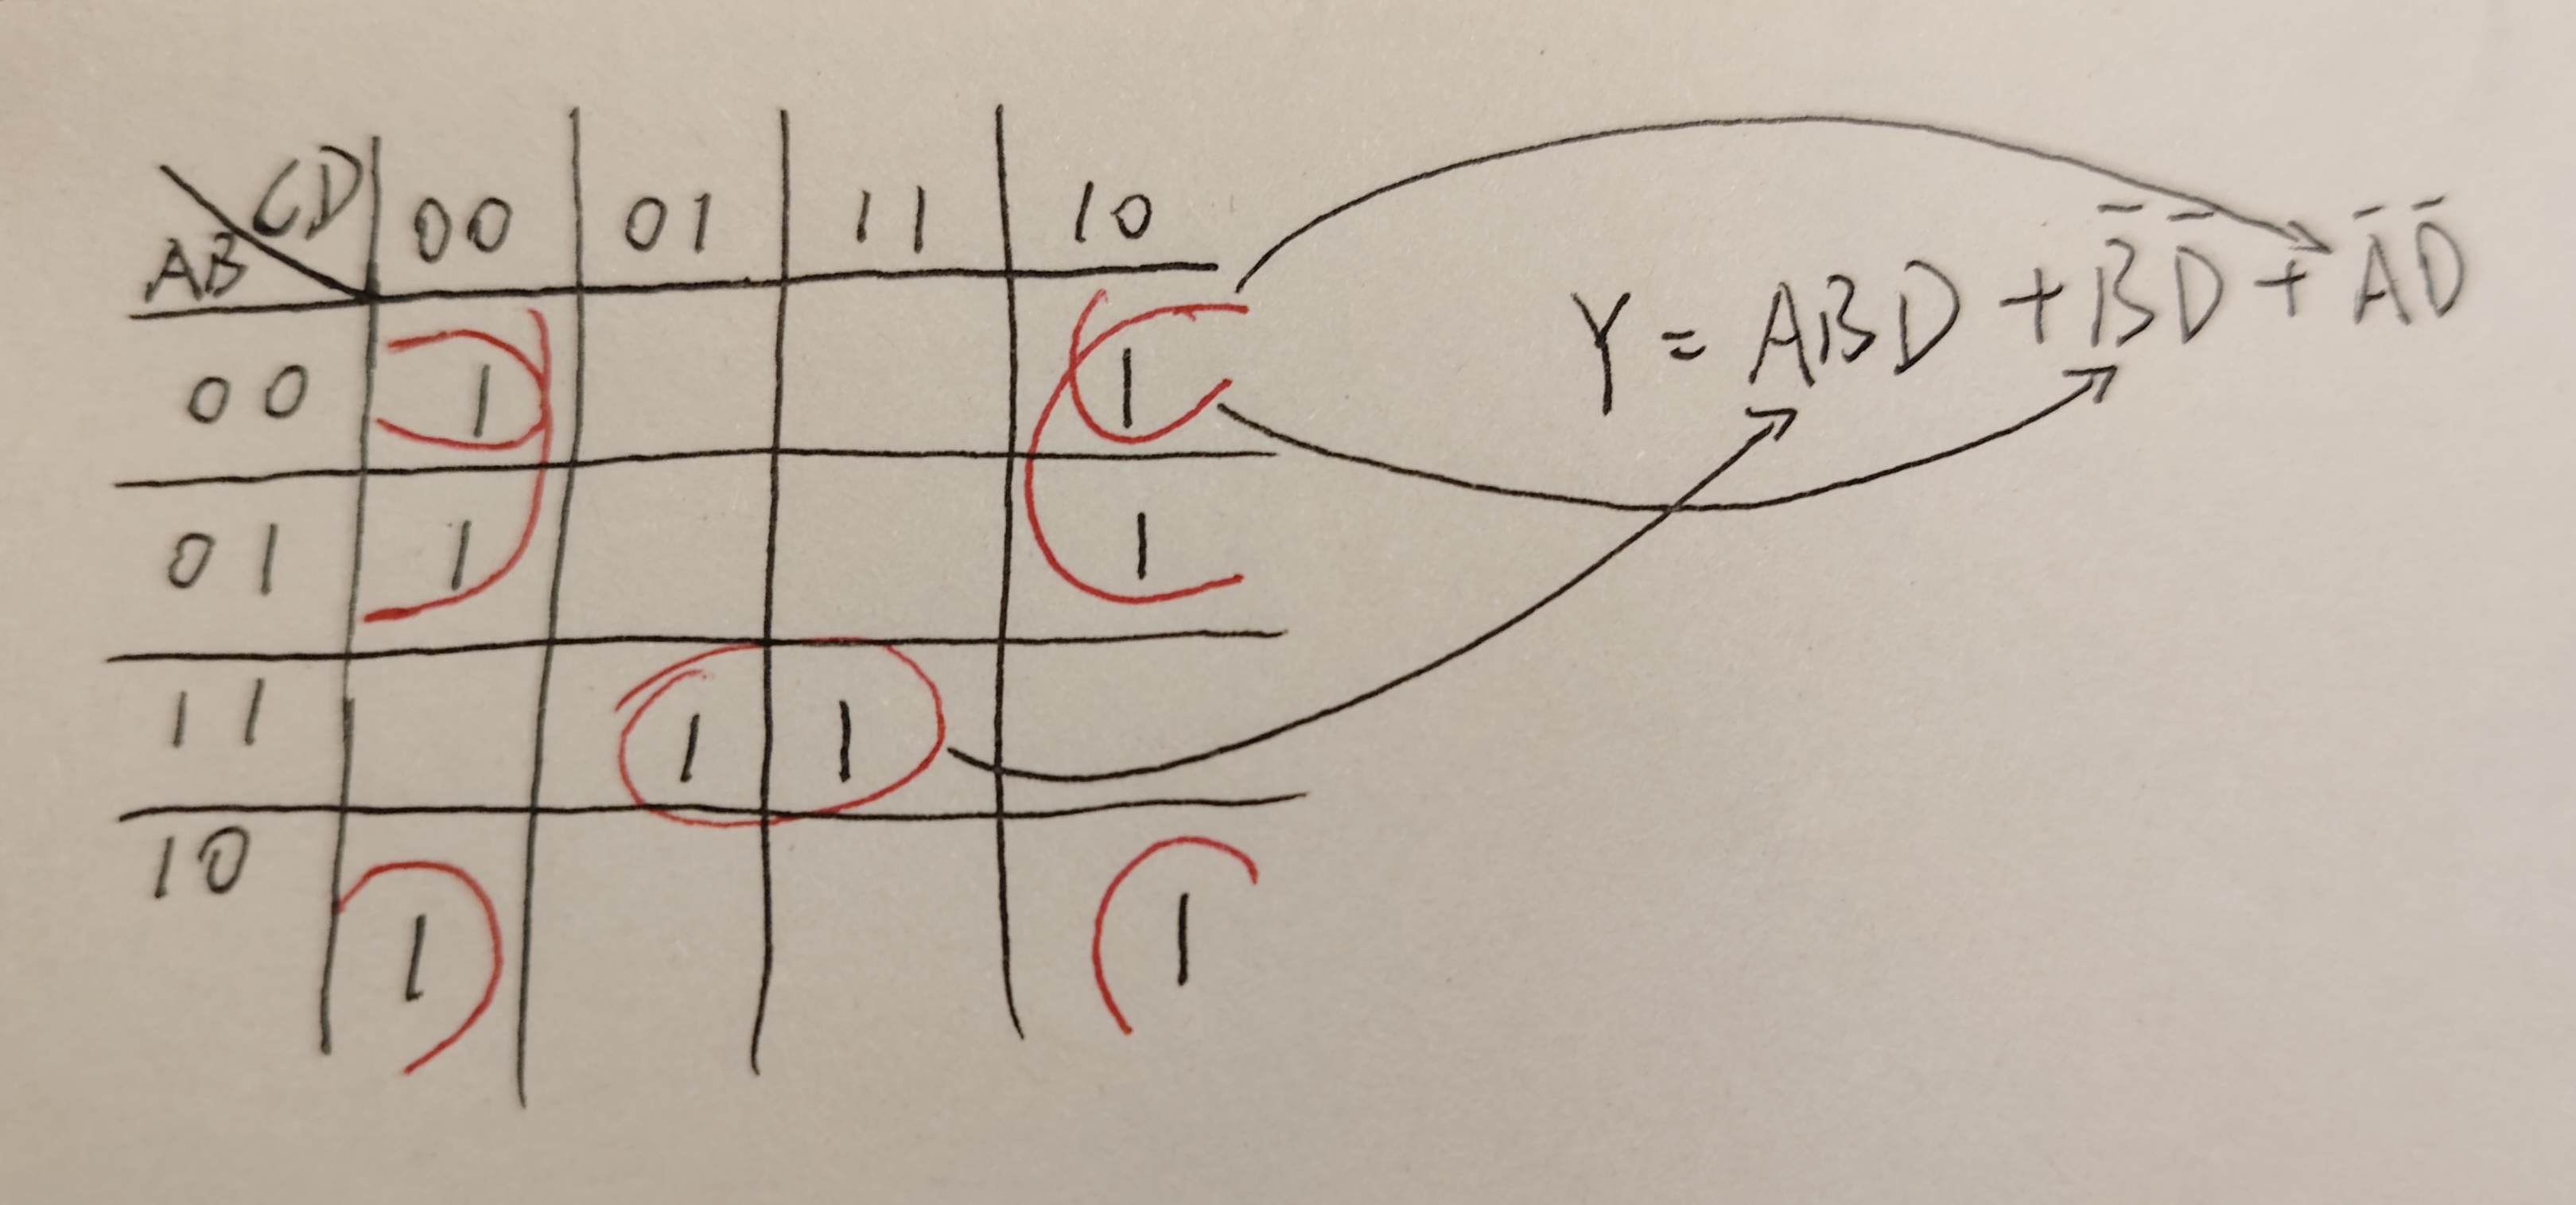 CD 00 01 11 10
AB
00 1 1
01 1 1
11 1 1
10 1 1
Y = ABD + B̄D̄ + ĀD̄